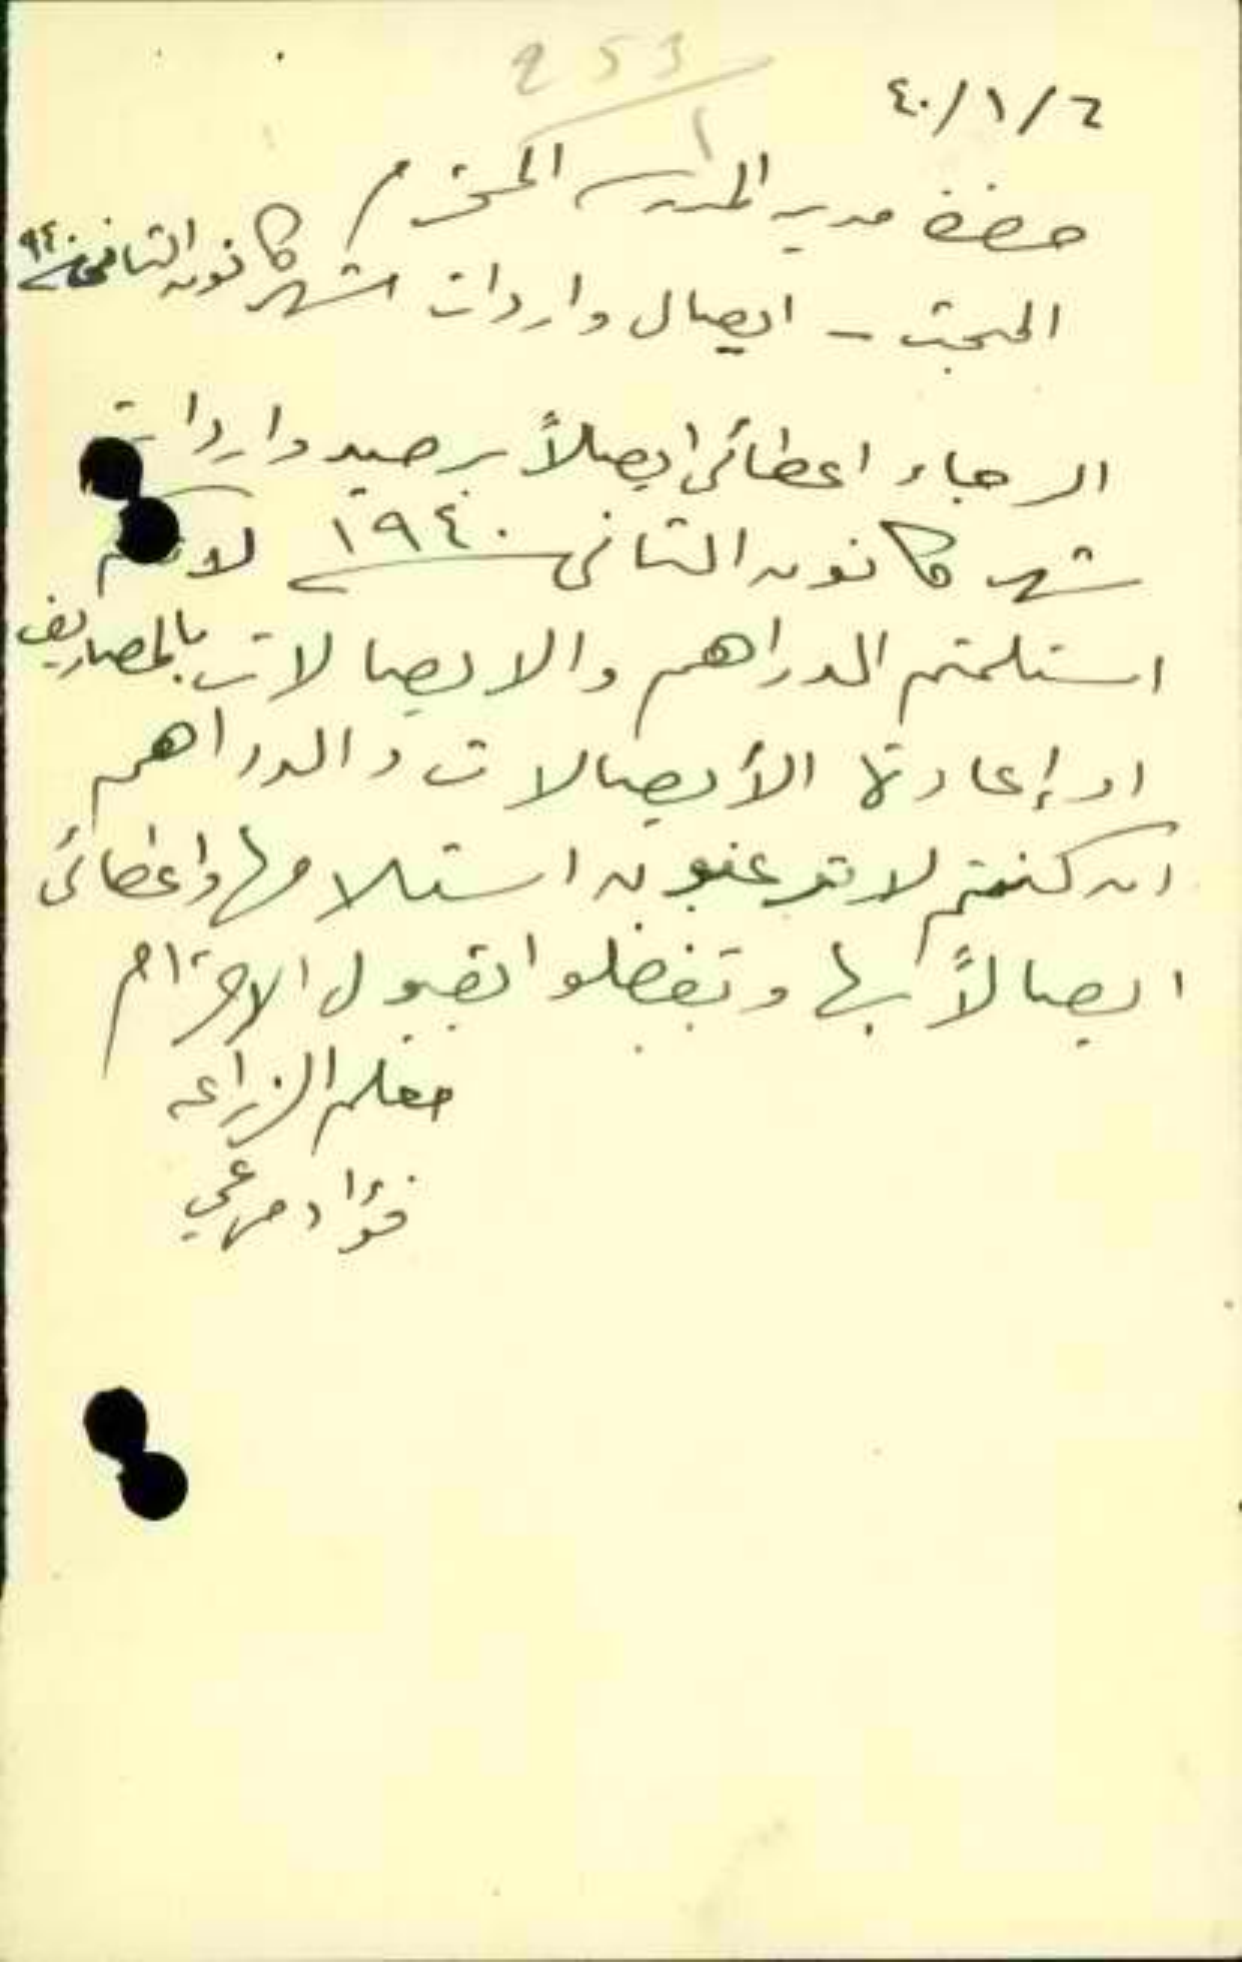 253
٤٠/١/٦
حضرة مدير المدرسة المحترم
المبحث - ايصال واردات شهر كانون الثاني ٩٤٠
الرجاء اعطائي ايصلاً برصيد واردات
شهر كانون الثاني ١٩٤٠ لانكم
استلمتم الدراهم والايصالات بالمصاريف
او إعادة الأيصالات والدراهم
ان كنتم لا ترغبون استلامها واعطائي
ايصالاً بها وتفضلوا بقبول الاحترام
معلم الزراعة
فؤاد مرعي